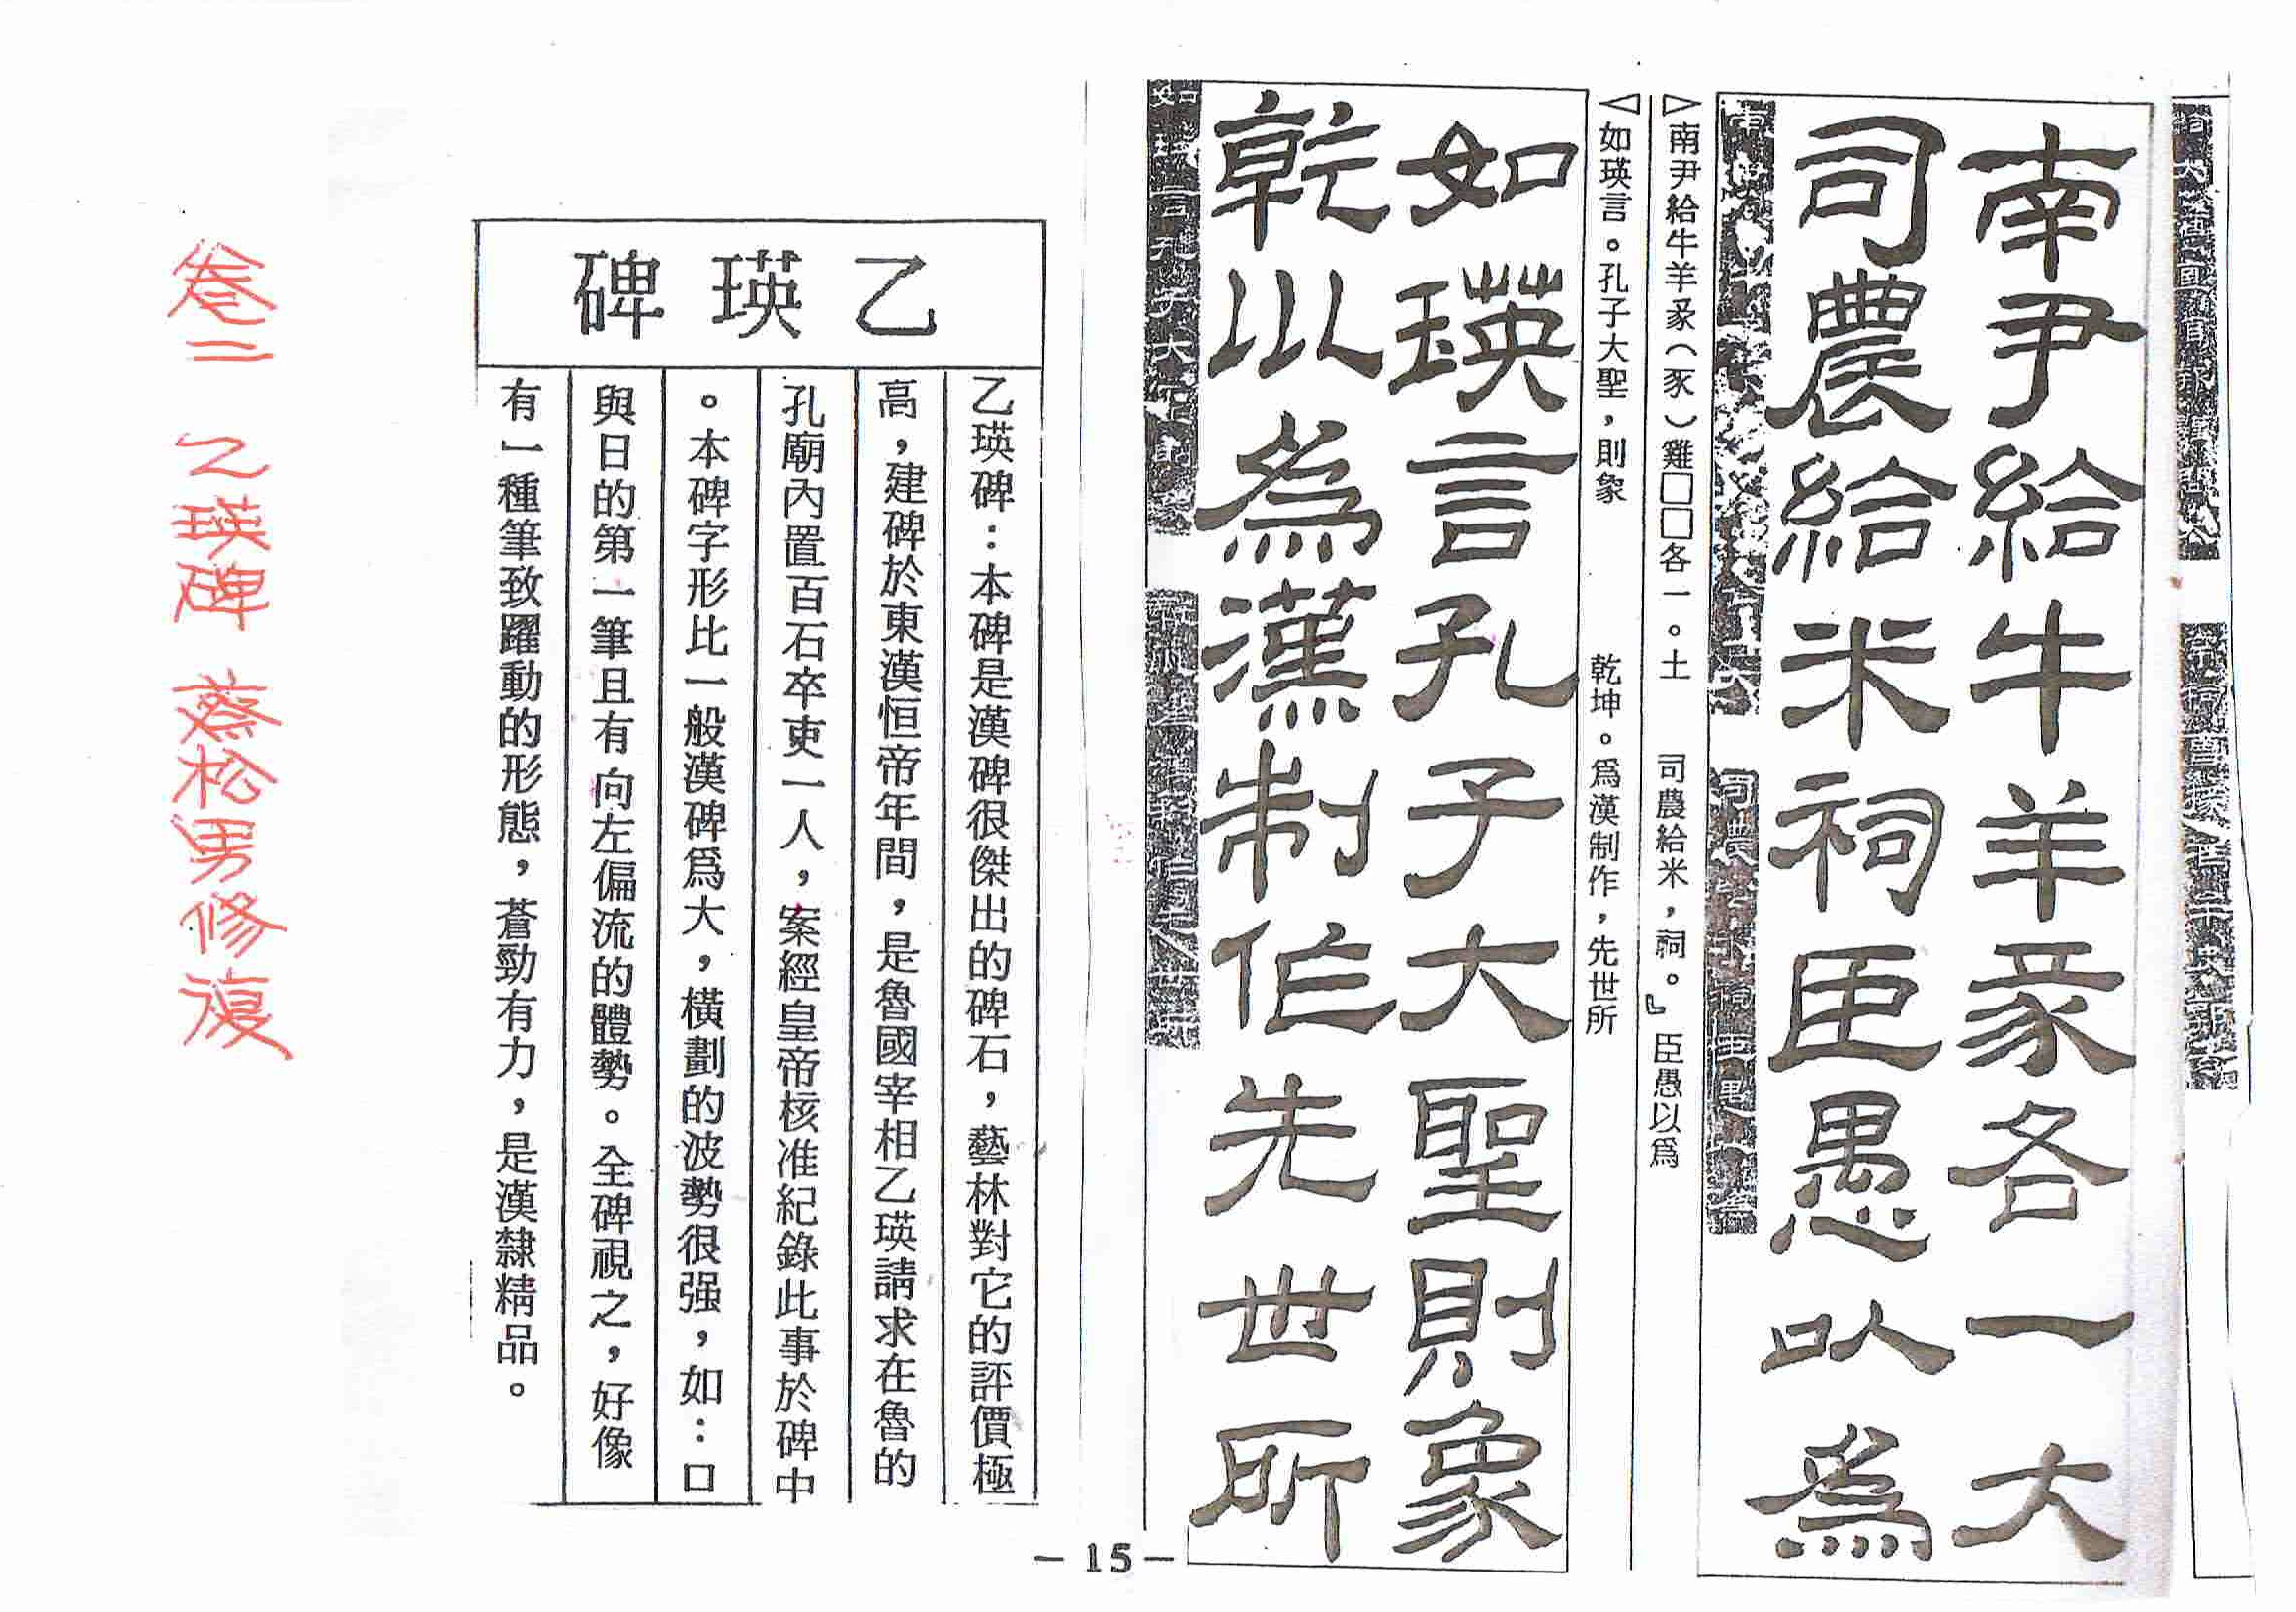 南尹給牛羊豕各一大
司農給米祠臣愚以為
▷南尹給牛羊豕（豕）雞□□各一。土　司農給米，祠。』臣愚以爲
◁如瑛言。孔子大聖，則象　乾坤。爲漢制作，先世所
如瑛言孔子大聖則象
乾以為漢制作先世所
乙瑛碑
乙瑛碑：本碑是漢碑很傑出的碑石，藝林對它的評價極
高，建碑於東漢恒帝年間，是魯國宰相乙瑛請求在魯的
孔廟內置百石卒吏一人，案經皇帝核准紀錄此事於碑中
。本碑字形比一般漢碑爲大，橫劃的波勢很强，如：口
與日的第一筆且有向左偏流的體勢。全碑視之，好像
有一種筆致躍動的形態，蒼勁有力，是漢隸精品。
卷二 乙瑛碑 蔡松男修復
－15－